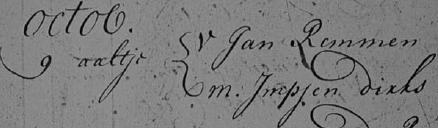 Octob.
9 aaltje { v Jan Remmen
m. Impjen dirks